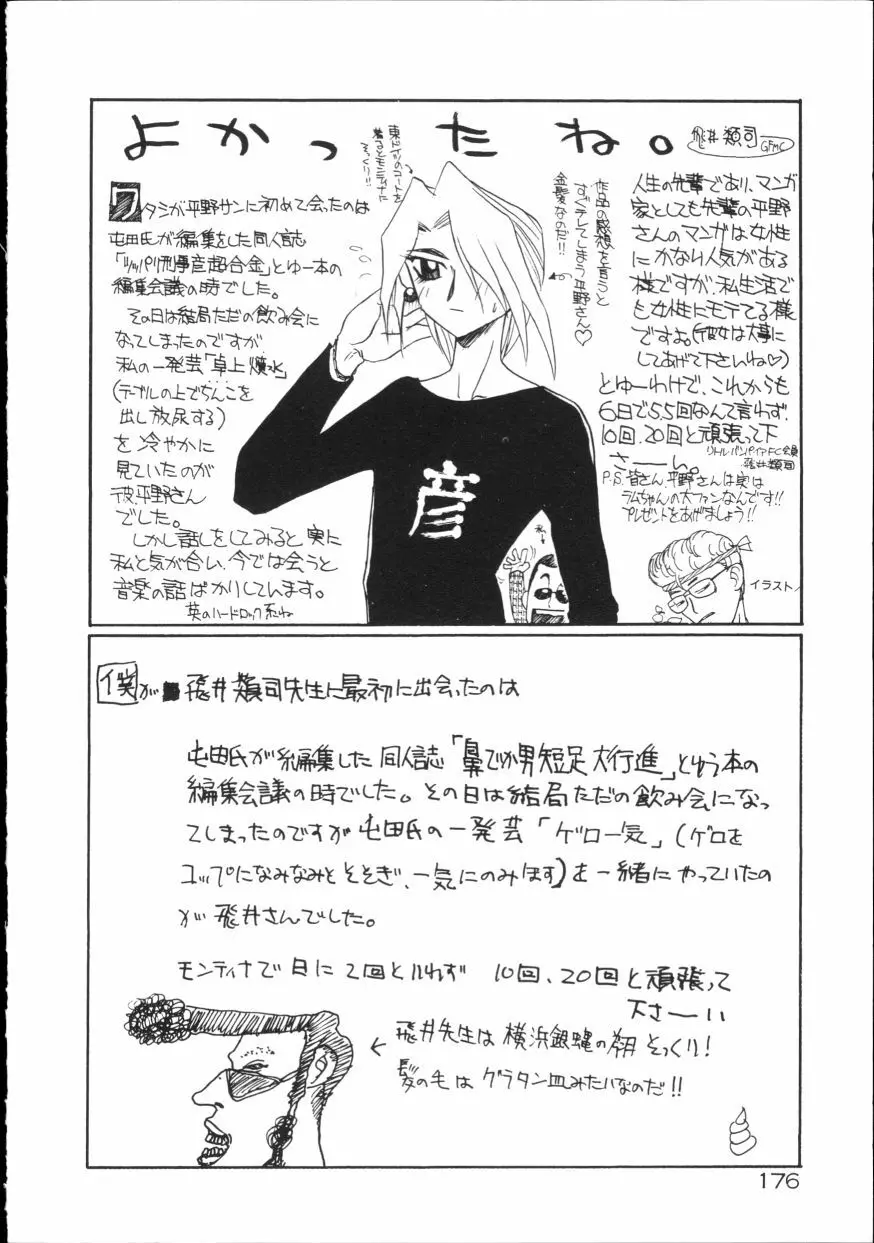 よかったね。
飛井類司
GFMC
東ドイツのコートを
着るとモンティナた
そっくり!!
ワタシが平野サンに初めて会ったのは
屯田氏が編集をした同人誌
「ツッパリ刑事彦超合金」とゆー本の
編集会議の時でした。
その日は結局ただの飲み会に
なってしまったのですが
私の一発芸「卓上噴水」
(テーブルの上でちんこを
出し放尿する)
を冷やかに
見ていたのが
彼、平野さん
でした。
しかし話しをしてみると実に
私と気が合い、今では会うと
音楽の話ばかりしています。
英のハードロック系ね
作品の感想を言うと
すぐテレてしまう平野さん♡
金髪なのだ!!
彦
私
人生の先輩であり、マンガ
家としても先輩の平野
さんのマンガは女性
にかなり人気がある
様ですが、私生活で
も女性にモテてる様
ですお(彼女は大事に
してあげて下さいね♡)
とゆーわけで、これからも
6日で55回なんて言わず、
10回、20回と頑張って下
さーい。
リトルバンパイアFC会員
飛井類司
P.S.皆さん、平野さんは実は
ラムちゃんの大ファンなんです!!
プレゼントをあげましょう!!
イラスト/
僕が飛井類司先生に最初に出会ったのは
屯田氏が編集した同人誌「鼻でか男短足大行進」とゆう本の
編集会議の時でした。その日は結局ただの飲み会になっ
てしまったのですが屯田氏の一発芸「ゲロ一気」(ゲロを
コップになみなみとそそぎ、一気にのみほす)を一緒にやっていたの
が飛井さんでした。
モンティナで日に2回といわず 10回、20回と頑張って
下さーい
飛井先生は横浜銀蝿の翔そっくり!
髪の毛はグラタン皿みたいなのだ!!
176